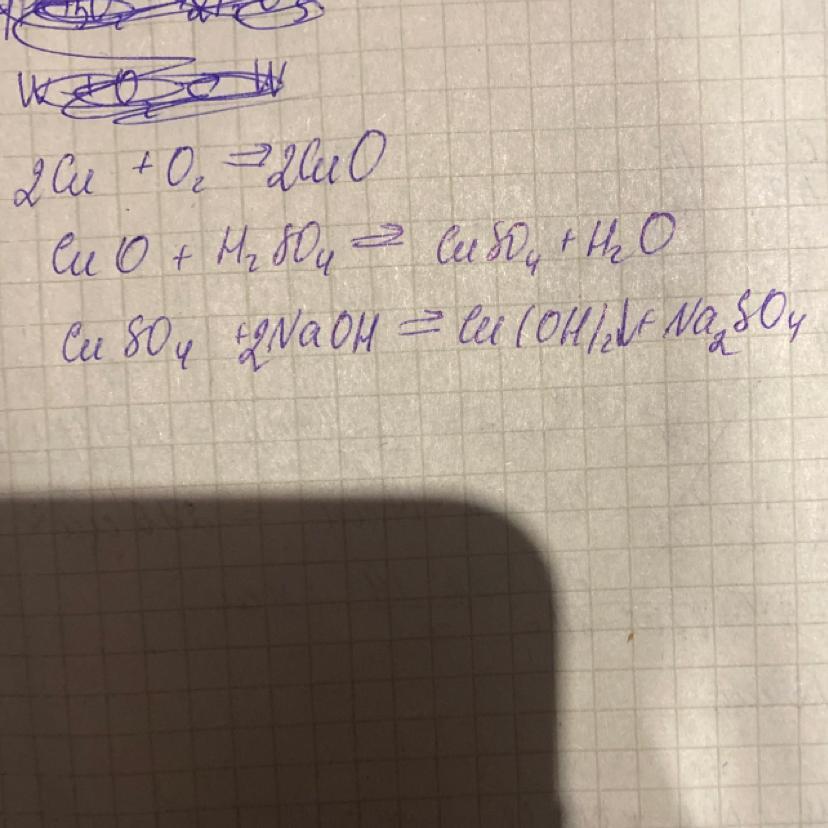 2Cu + O₂ ⇒ 2CuO
CuO + H₂SO₄ ⇒ CuSO₄ + H₂O
CuSO₄ + 2NaOH ⇒ Cu(OH)₂↓ + Na₂SO₄